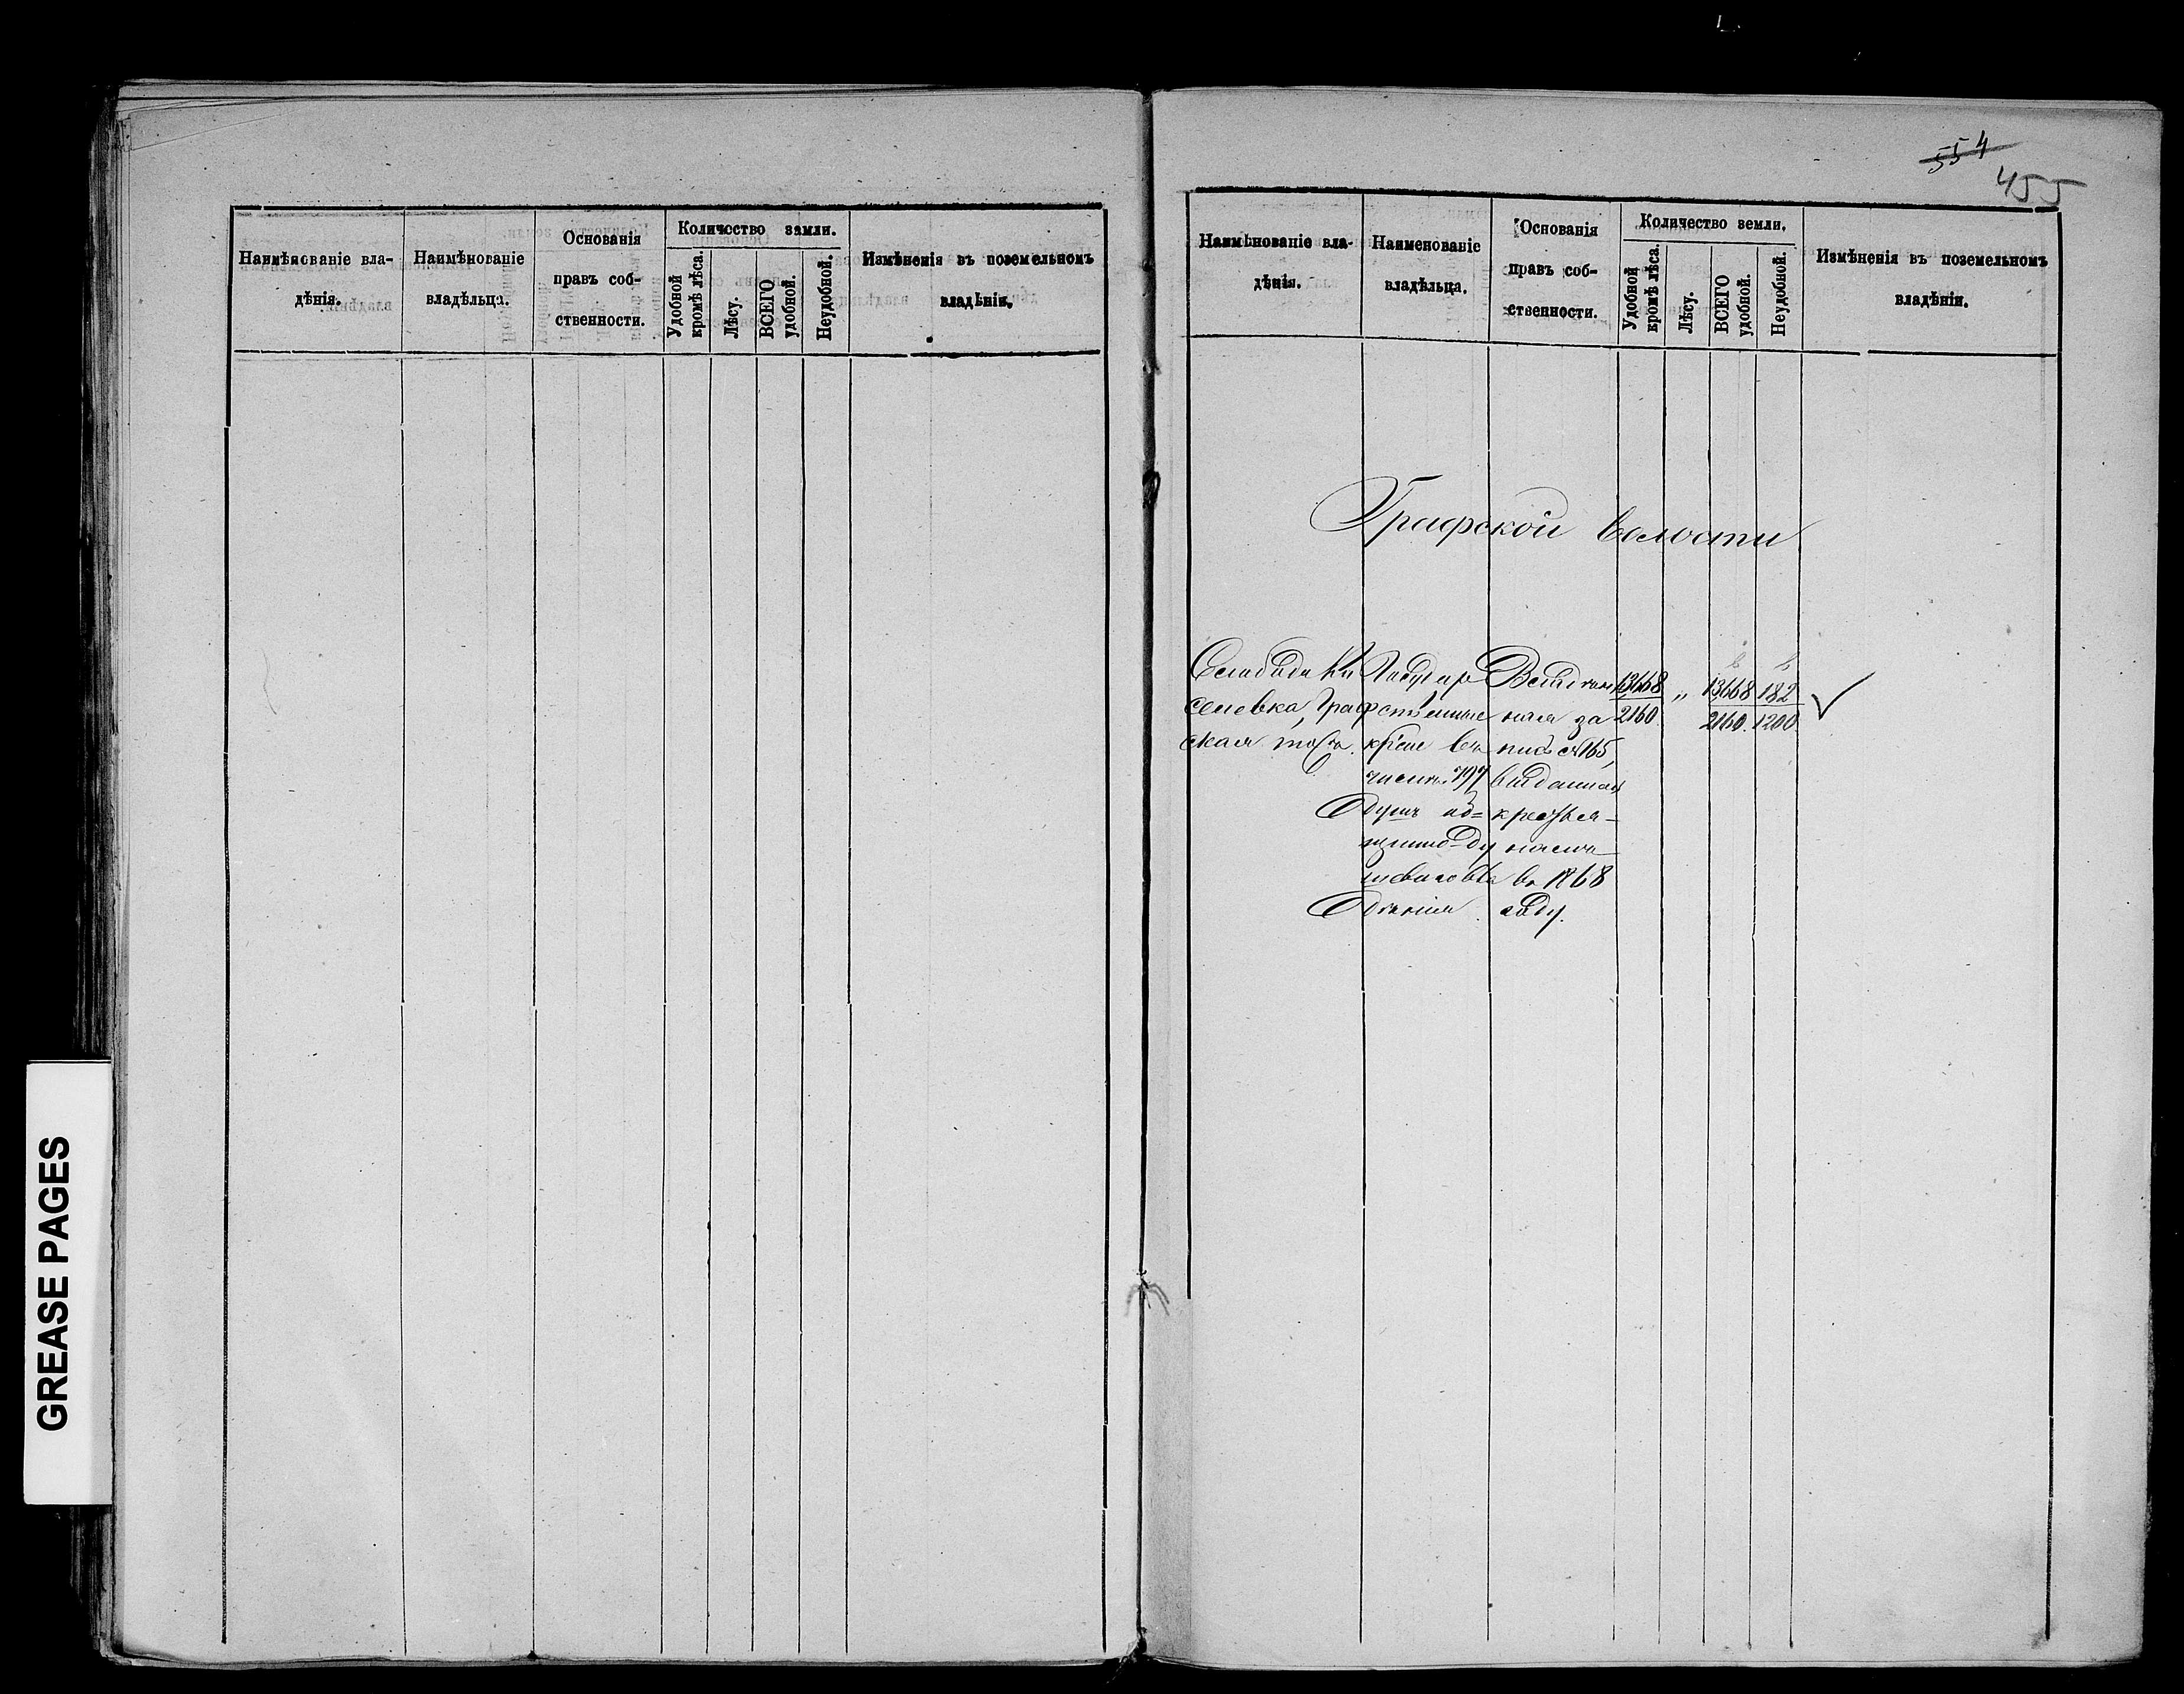 554
455
Наимѣнованіе вла-
дѣнія.
Наимѣнованіе
владѣльца.
Основанія
правъ соб-
ственности.
Количество земли.
Удобной
кромѣ лѣса.
Лѣсу.
ВСЕГО
удобной.
Неудобной.
Измѣненія въ поземельномъ
владѣніи.
Наимѣнованіе вла-
дѣнія.
Наименованіе
владѣльца.
Основанія
правъ соб-
ственности.
Количество земли.
Удобной
кромѣ лѣса.
Лѣсу.
ВСЕГО
удобной.
Неудобной.
Измѣненія въ поземельномъ
владѣніи.
Графской волости
Слобода Ки
селевка, Граф
ская тожъ.
Государ
ственные
кр-не въ
числѣ 797
душъ
Владѣн
ная за
пись №165,
выданная
крестья-
намъ
въ 1868
году.
13668
2160
"
13668
2160.
182
1200.
GREASE PAGES